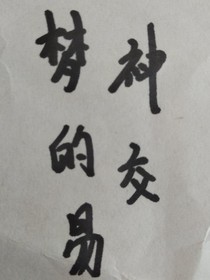 神交
梦的易